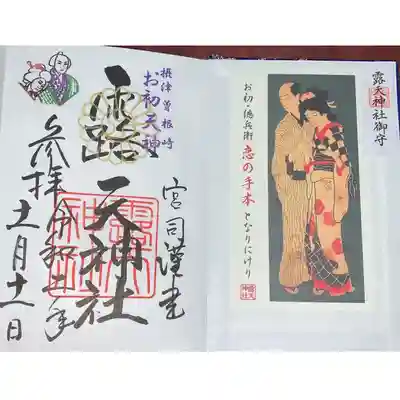 摂津曽根崎
お初天神
宮司謹書
露天神社
参拝 令和
十一月十一日
露天神社御守
お初・徳兵衛 恋の手本 となりにけり
露天神社